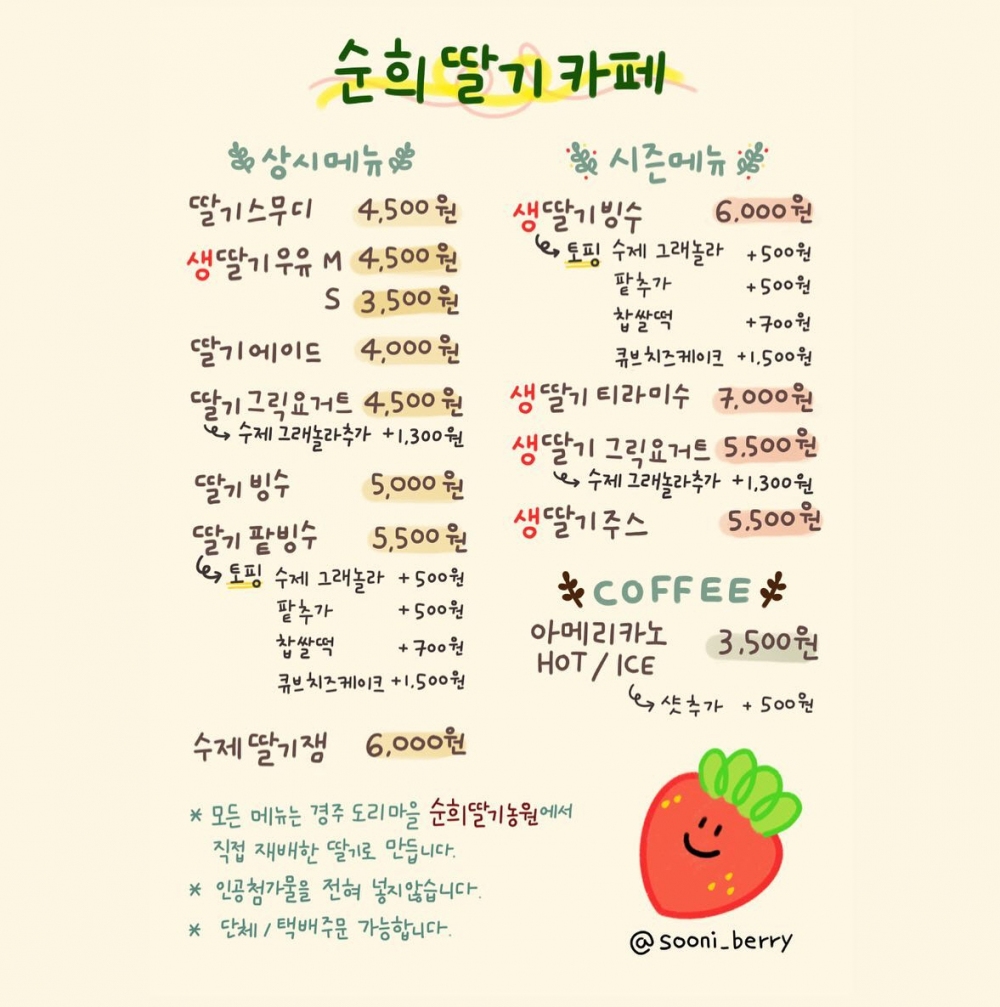 순희딸기카페
상시메뉴
딸기스무디 4,500원
생딸기우유 M 4,500원
S 3,500원
딸기에이드 4,000원
딸기그릭요거트 4,500원
수제 그래놀라추가 +1,300원
딸기 빙수 5,000원
딸기 팥빙수 5,500원
토핑 수제 그래놀라 +500원
팥추가 +500원
찹쌀떡 +700원
큐브치즈케이크 +1,500원
수제 딸기잼 6,000원
시즌메뉴
생딸기빙수 6,000원
토핑 수제 그래놀라 +500원
팥추가 +500원
찹쌀떡 +700원
큐브치즈케이크 +1,500원
생딸기 티라미수 7,000원
생딸기 그릭요거트 5,500원
수제 그래놀라추가 +1,300원
생딸기주스 5,500원
COFFEE
아메리카노 3,500원
HOT / ICE
샷추가 +500원
* 모든 메뉴는 경주 도리마을 순희딸기농원에서
직접 재배한 딸기로 만듭니다.
* 인공첨가물을 전혀 넣지않습니다.
* 단체 / 택배주문 가능합니다.
@sooni_berry